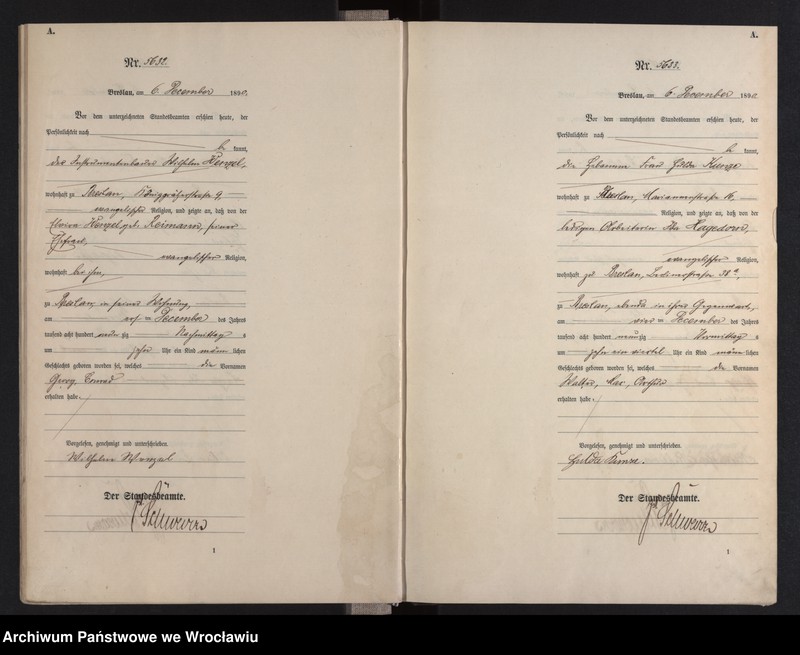 A.
Nr. 5632.
Breslau, am 6. December 1890.
Vor dem unterzeichneten Standesbeamten erschien heute, der
Persönlichkeit nach
kannt,
der Instrumentenbauer Wilhelm
wohnhaft zu Breslau, Königgrätzerstraße 9,
evangelischer Religion, und zeigte an, daß von der
geb. Reimann, seiner
Ehefrau,
evangelischer Religion,
wohnhaft bei ihm,
zu Breslau, in seiner Wohnung,
am December des Jahres
tausend acht hundert zig Nachmittag s
um zehn Uhr ein Kind männ lichen
Geschlechts geboren worden sei, welches die Vornamen
Georg Conrad
erhalten habe
Vorgelesen, genehmigt und unterschrieben.
Wilhelm
Der Standesbeamte.
1
A.
Nr. 5633.
Breslau, am 6. December 1890.
Vor dem unterzeichneten Standesbeamten erschien heute, der
Persönlichkeit nach
kannt,
die Hebamme Frau Hulda Kunze
wohnhaft zu Breslau, 16,
Religion, und zeigte an, daß von der
ledigen Arbeiterin Hagedorn,
evangelischer Religion,
wohnhaft zu Breslau, 38a,
zu Breslau, ebenda in ihrer Gegenwart,
am December des Jahres
tausend acht hundert neunzig Vormittag s
um zehn ein viertel Uhr ein Kind männ lichen
Geschlechts geboren worden sei, welches die Vornamen
erhalten habe
Vorgelesen, genehmigt und unterschrieben.
Hulda Kunze.
Der Standesbeamte.
1
Archiwum Państwowe we Wrocławiu